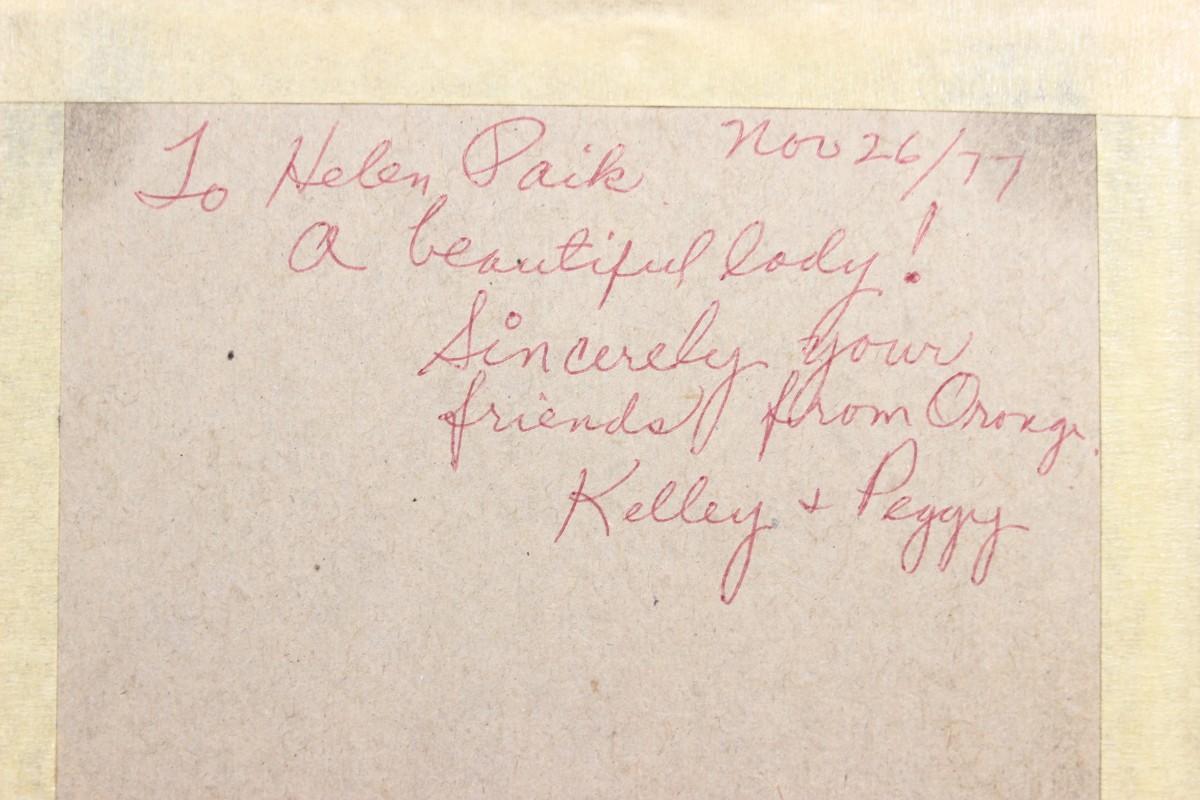 To Helen Paik Nov 26/77
A beautiful lady!
Sincerely your
friends from Orange.
Kelley + Peggy